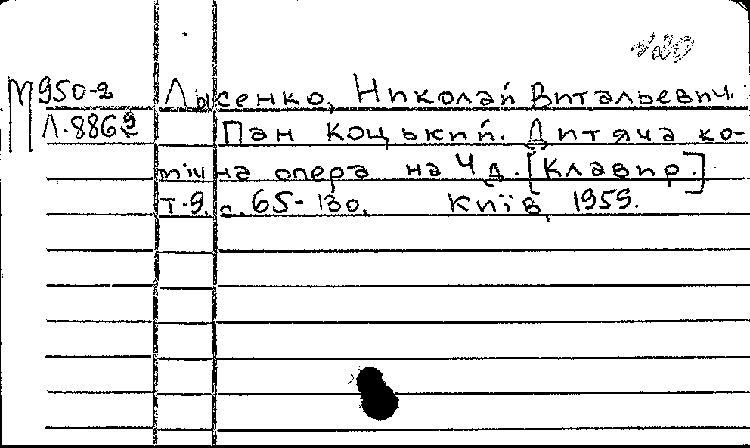 М950-2 Лысенко, Николай Витальевич.
Л.8862 Пан Коцький. Дитяча ко-
мічна опера на 4 д. [Клавир.]
т.9. с.65-130. Київ, 1959.